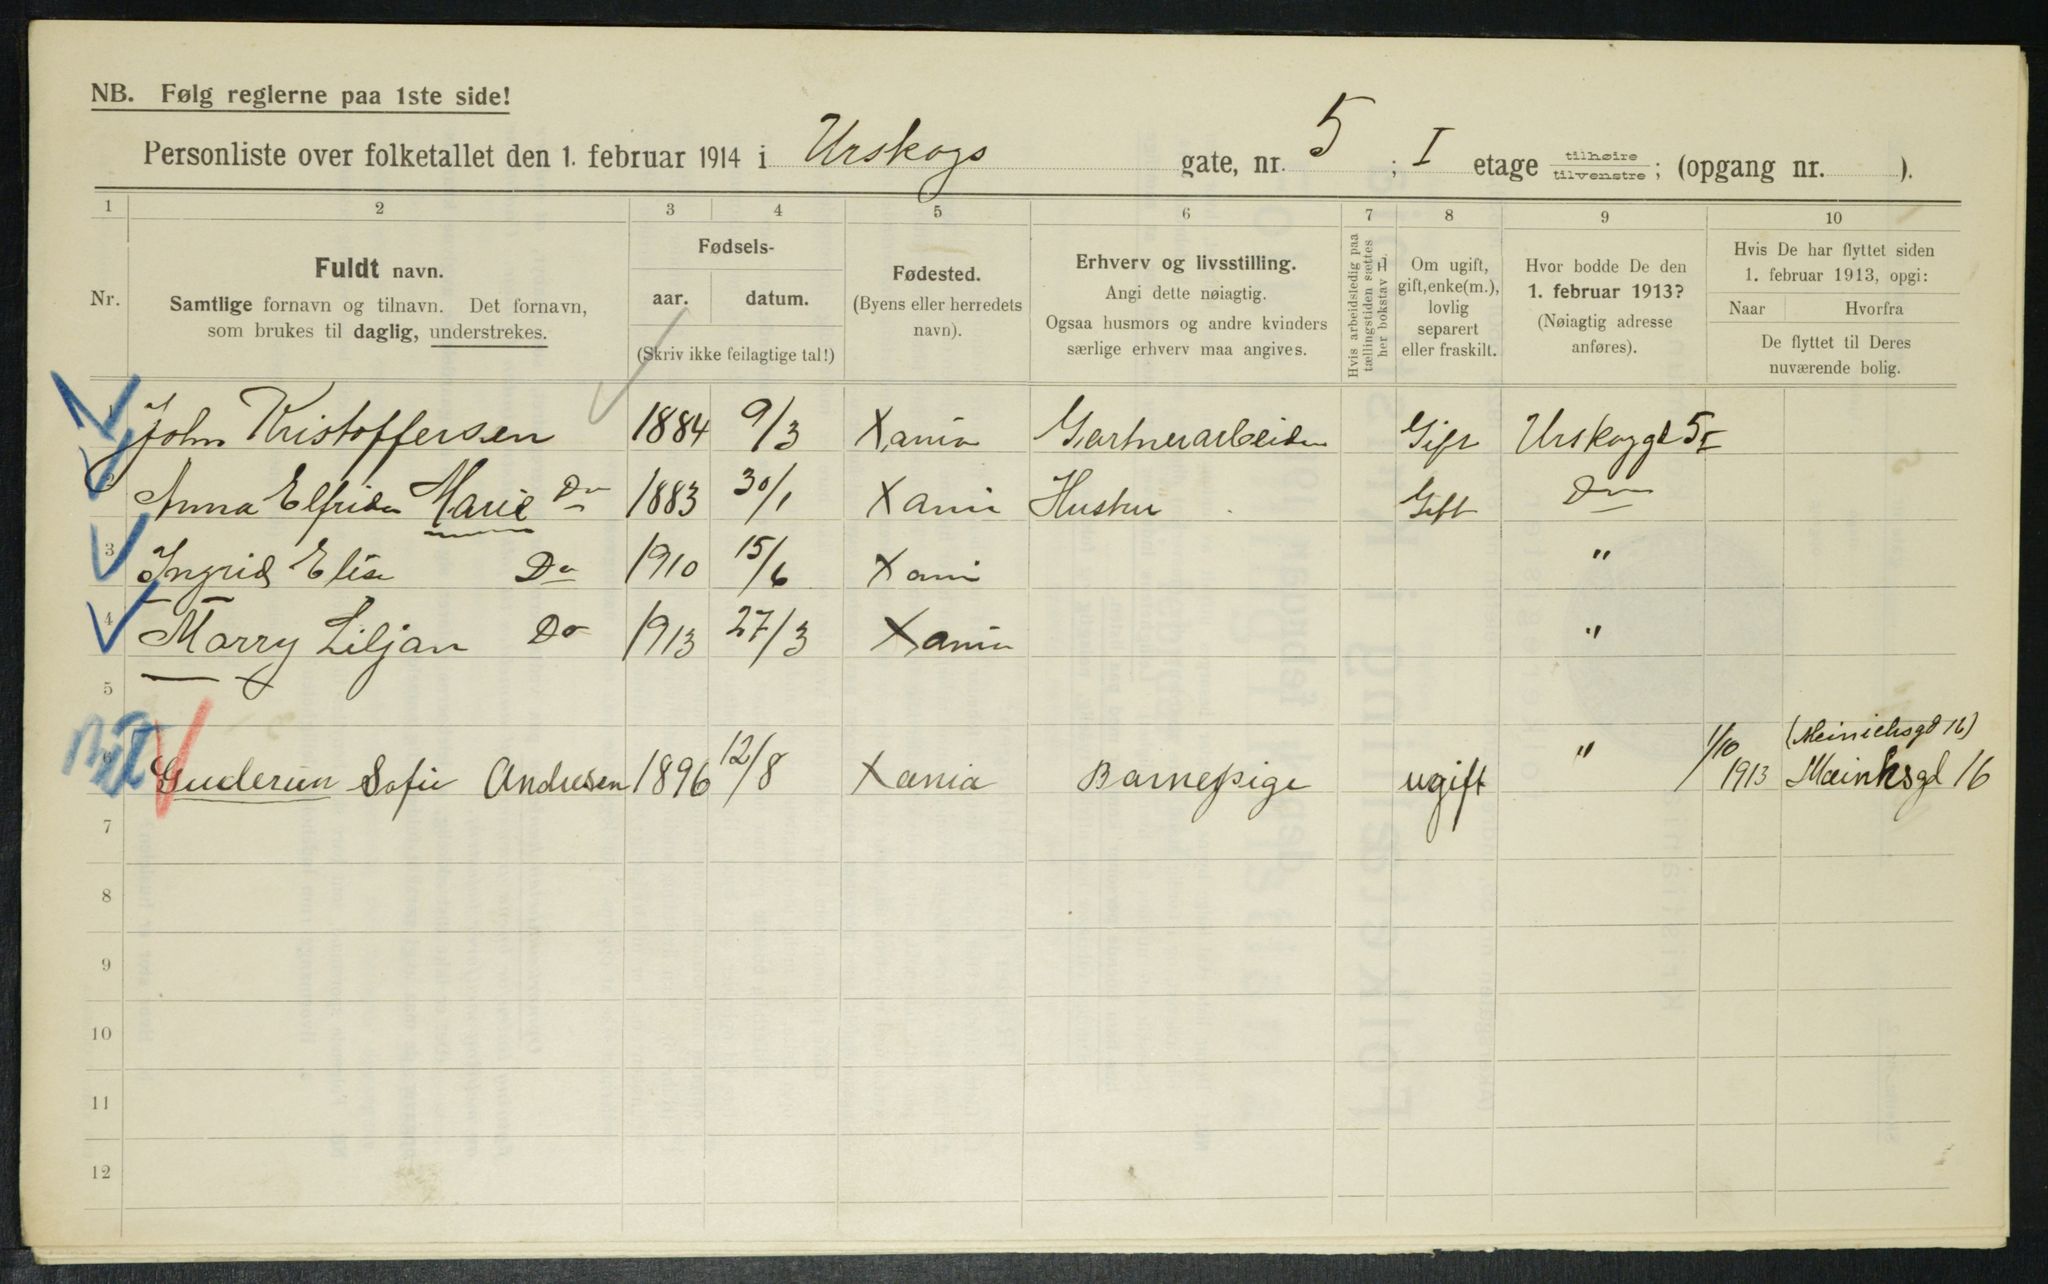 NB. Følg reglerne paa 1ste side!
Personliste over folketallet den 1. februar 1914 i Urskogs gate, nr. 5 ; I etage tilhøire tilvenstre ; (opgang nr. ).
1 2 3 4 5 6 7 8 9 10
Nr.
Fuldt navn.
Samtlige fornavn og tilnavn. Det fornavn,
som brukes til daglig, understrekes.
Fødsels-
aar. datum.
(Skriv ikke feilagtige tal!)
Fødested.
(Byens eller herredets
navn).
Erhverv og livsstilling.
Angi dette nøiagtig.
Ogsaa husmors og andre kvinders
særlige erhverv maa angives.
Hvis arbeidsledig paa
tællingstiden sættes
her bokstav L
Om ugift,
gift, enke(m.),
lovlig
separert
eller fraskilt.
Hvor bodde De den
1. februar 1913?
(Nøiagtig adresse
anføres).
Hvis De har flyttet siden
1. februar 1913, opgi:
Naar Hvorfra
De flyttet til Deres
nuværende bolig.
1 John Kristoffersen 1884 9/3 Xania Gartnerarbeider Gift Urskoggd 5 I
2 Anna Elfrida Marie Do 1883 30/1 Xania Hustru Gift Do
3 Ingrid Elise Do 1910 15/6 Xania "
4 Marry Liljan Do 1913 27/3 Xania "
5
(Meinichsgd 16)
6 Guderun Sofie Andresen 1896 12/8 Xania Barnepige ugift " 1/10 1913 Meinksgd 16
7
8
9
10
11
12